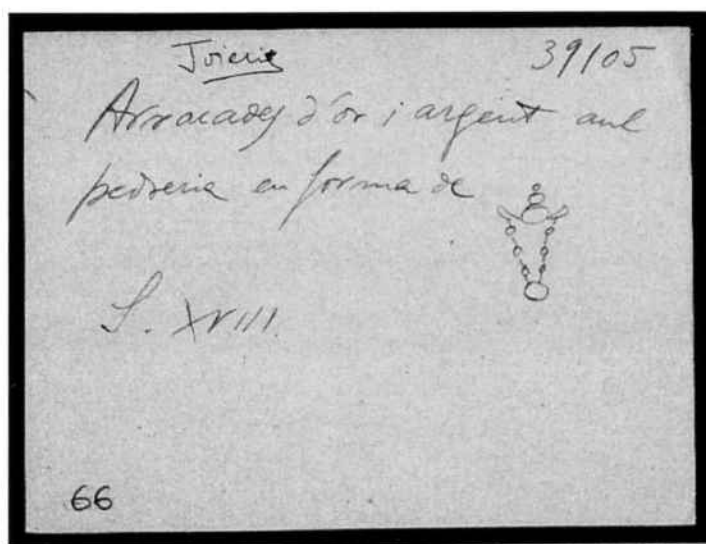 Joieria
39105
Arracades d'or i argent amb
pedreria en forma de
S. XVIII
66